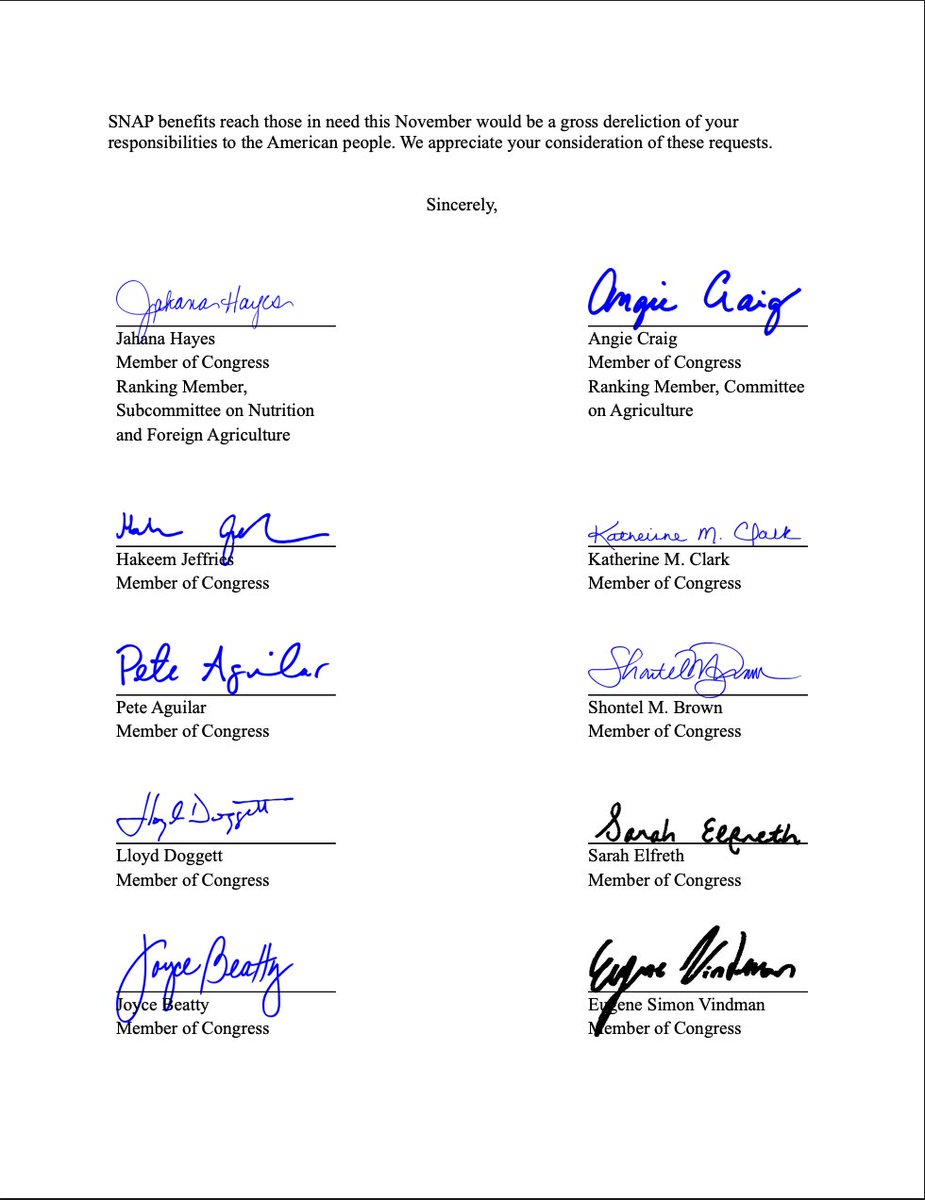 SNAP benefits reach those in need this November would be a gross dereliction of your
responsibilities to the American people. We appreciate your consideration of these requests.
Sincerely,
Jahana Hayes
Jahana Hayes
Member of Congress
Ranking Member,
Subcommittee on Nutrition
and Foreign Agriculture
Angie Craig
Angie Craig
Member of Congress
Ranking Member, Committee
on Agriculture
Hakeem Jeffries
Member of Congress
Katherine M. Clark
Katherine M. Clark
Member of Congress
Pete Aguilar
Pete Aguilar
Member of Congress
Shontel M. Brown
Shontel M. Brown
Member of Congress
Lloyd Doggett
Lloyd Doggett
Member of Congress
Sarah Elfreth
Sarah Elfreth
Member of Congress
Joyce Beatty
Joyce Beatty
Member of Congress
Eugene Vindman
Eugene Simon Vindman
Member of Congress